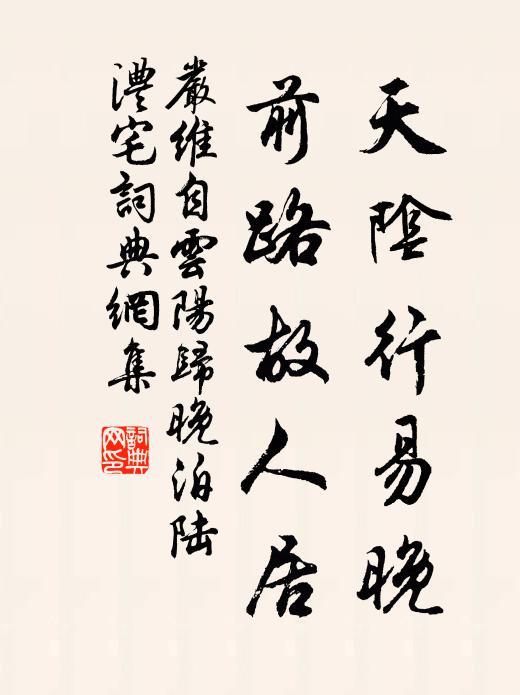 天陰行易晚
前路故人居
嚴維自雲陽歸晚泊陆
澧宅詞典網集
詞典
网印